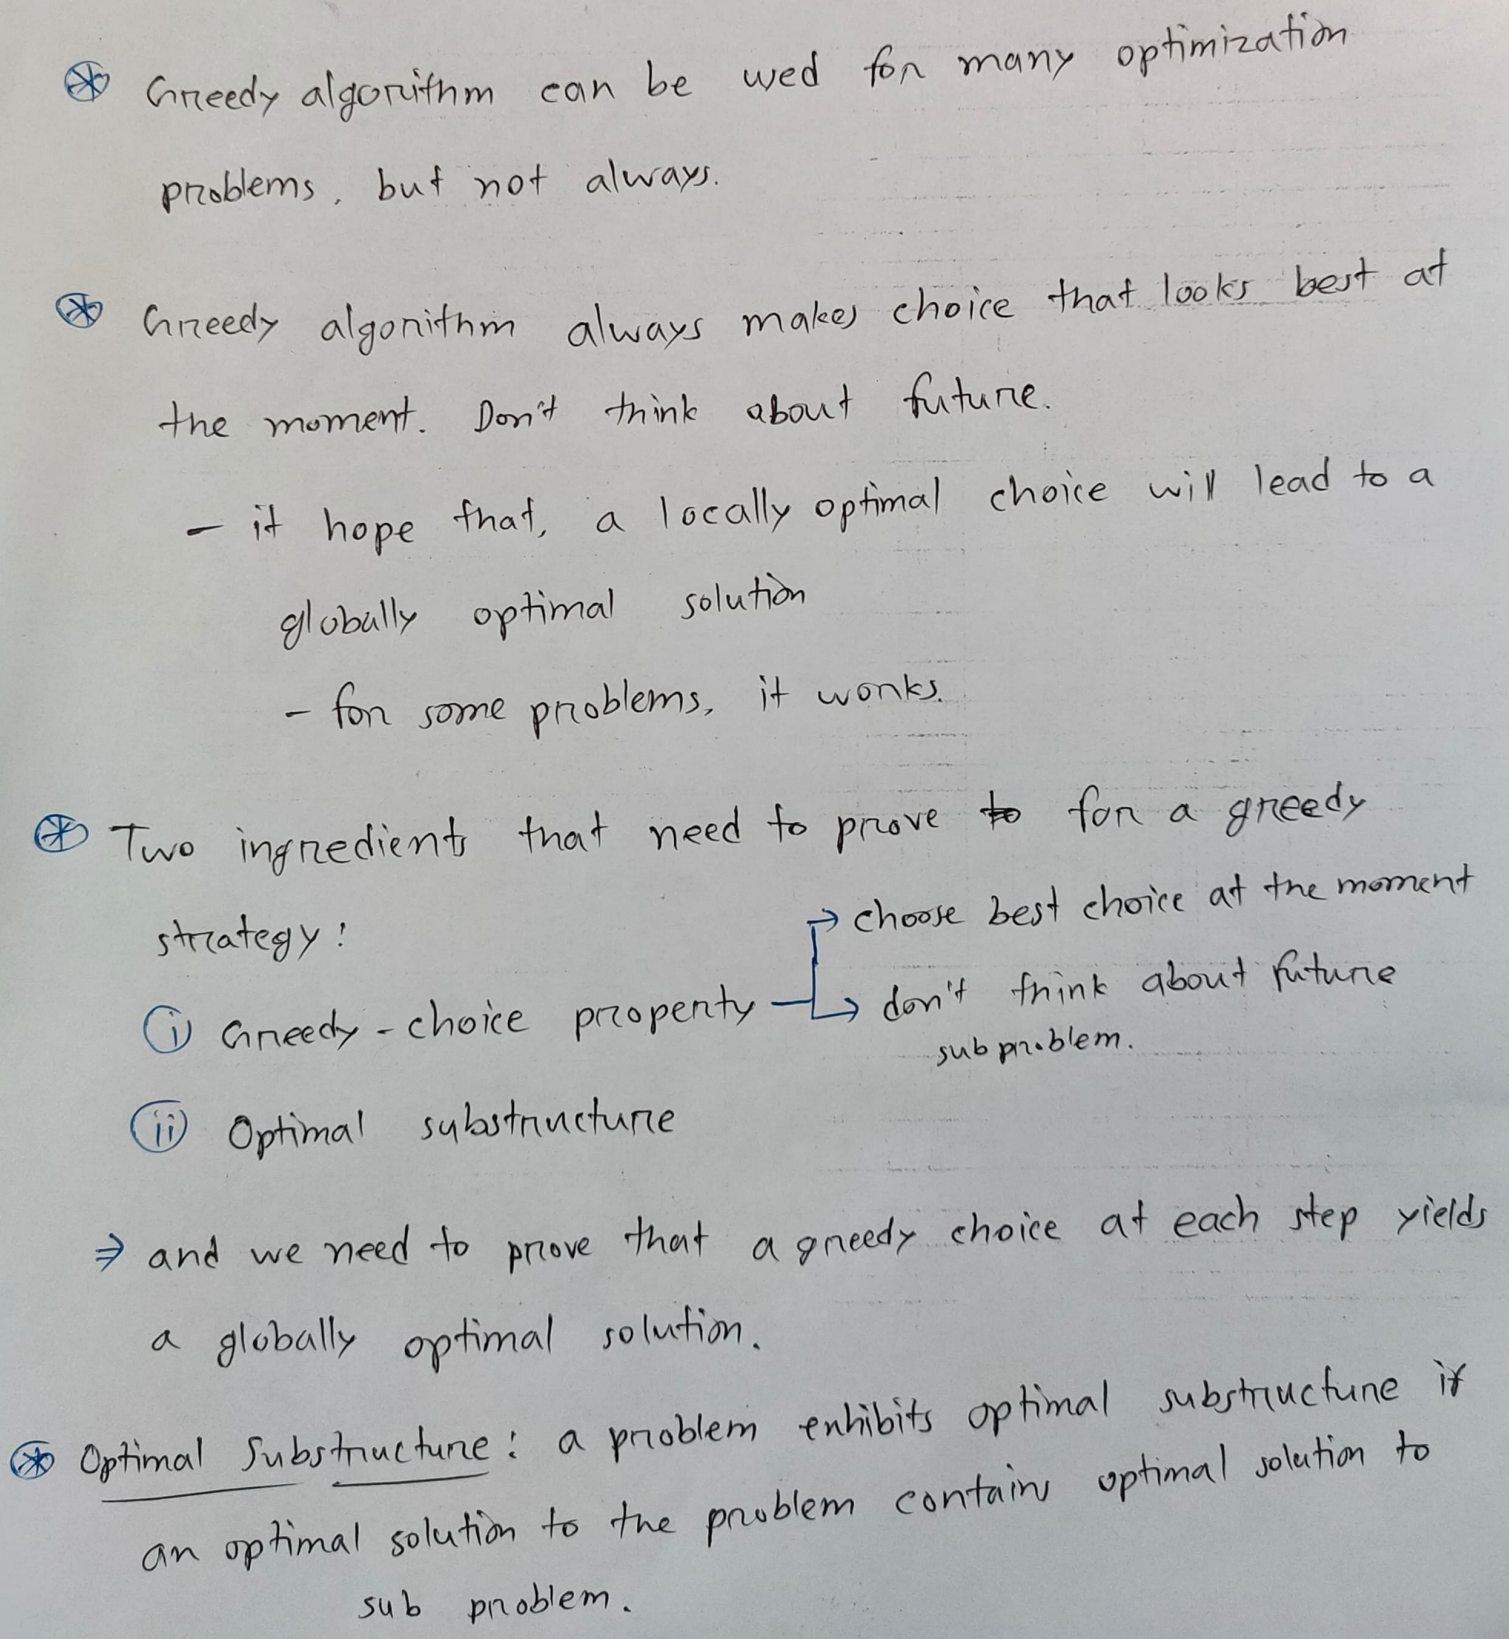 ⊛ Greedy algorithm can be used for many optimization
problems, but not always.
⊛ Greedy algorithm always makes choice that looks best at
the moment. Don't think about future.
- it hope that, a locally optimal choice will lead to a
globally optimal solution
- for some problems, it works.
⊛ Two ingredients that need to prove to for a greedy
strategy:
→ choose best choice at the moment
(i) Greedy-choice property → don't think about future
subproblem.
(ii) Optimal substructure
⇒ and we need to prove that a greedy choice at each step yields
a globally optimal solution.
⊛ Optimal Substructure: a problem exhibits optimal substructure if
an optimal solution to the problem contains optimal solution to
sub problem.